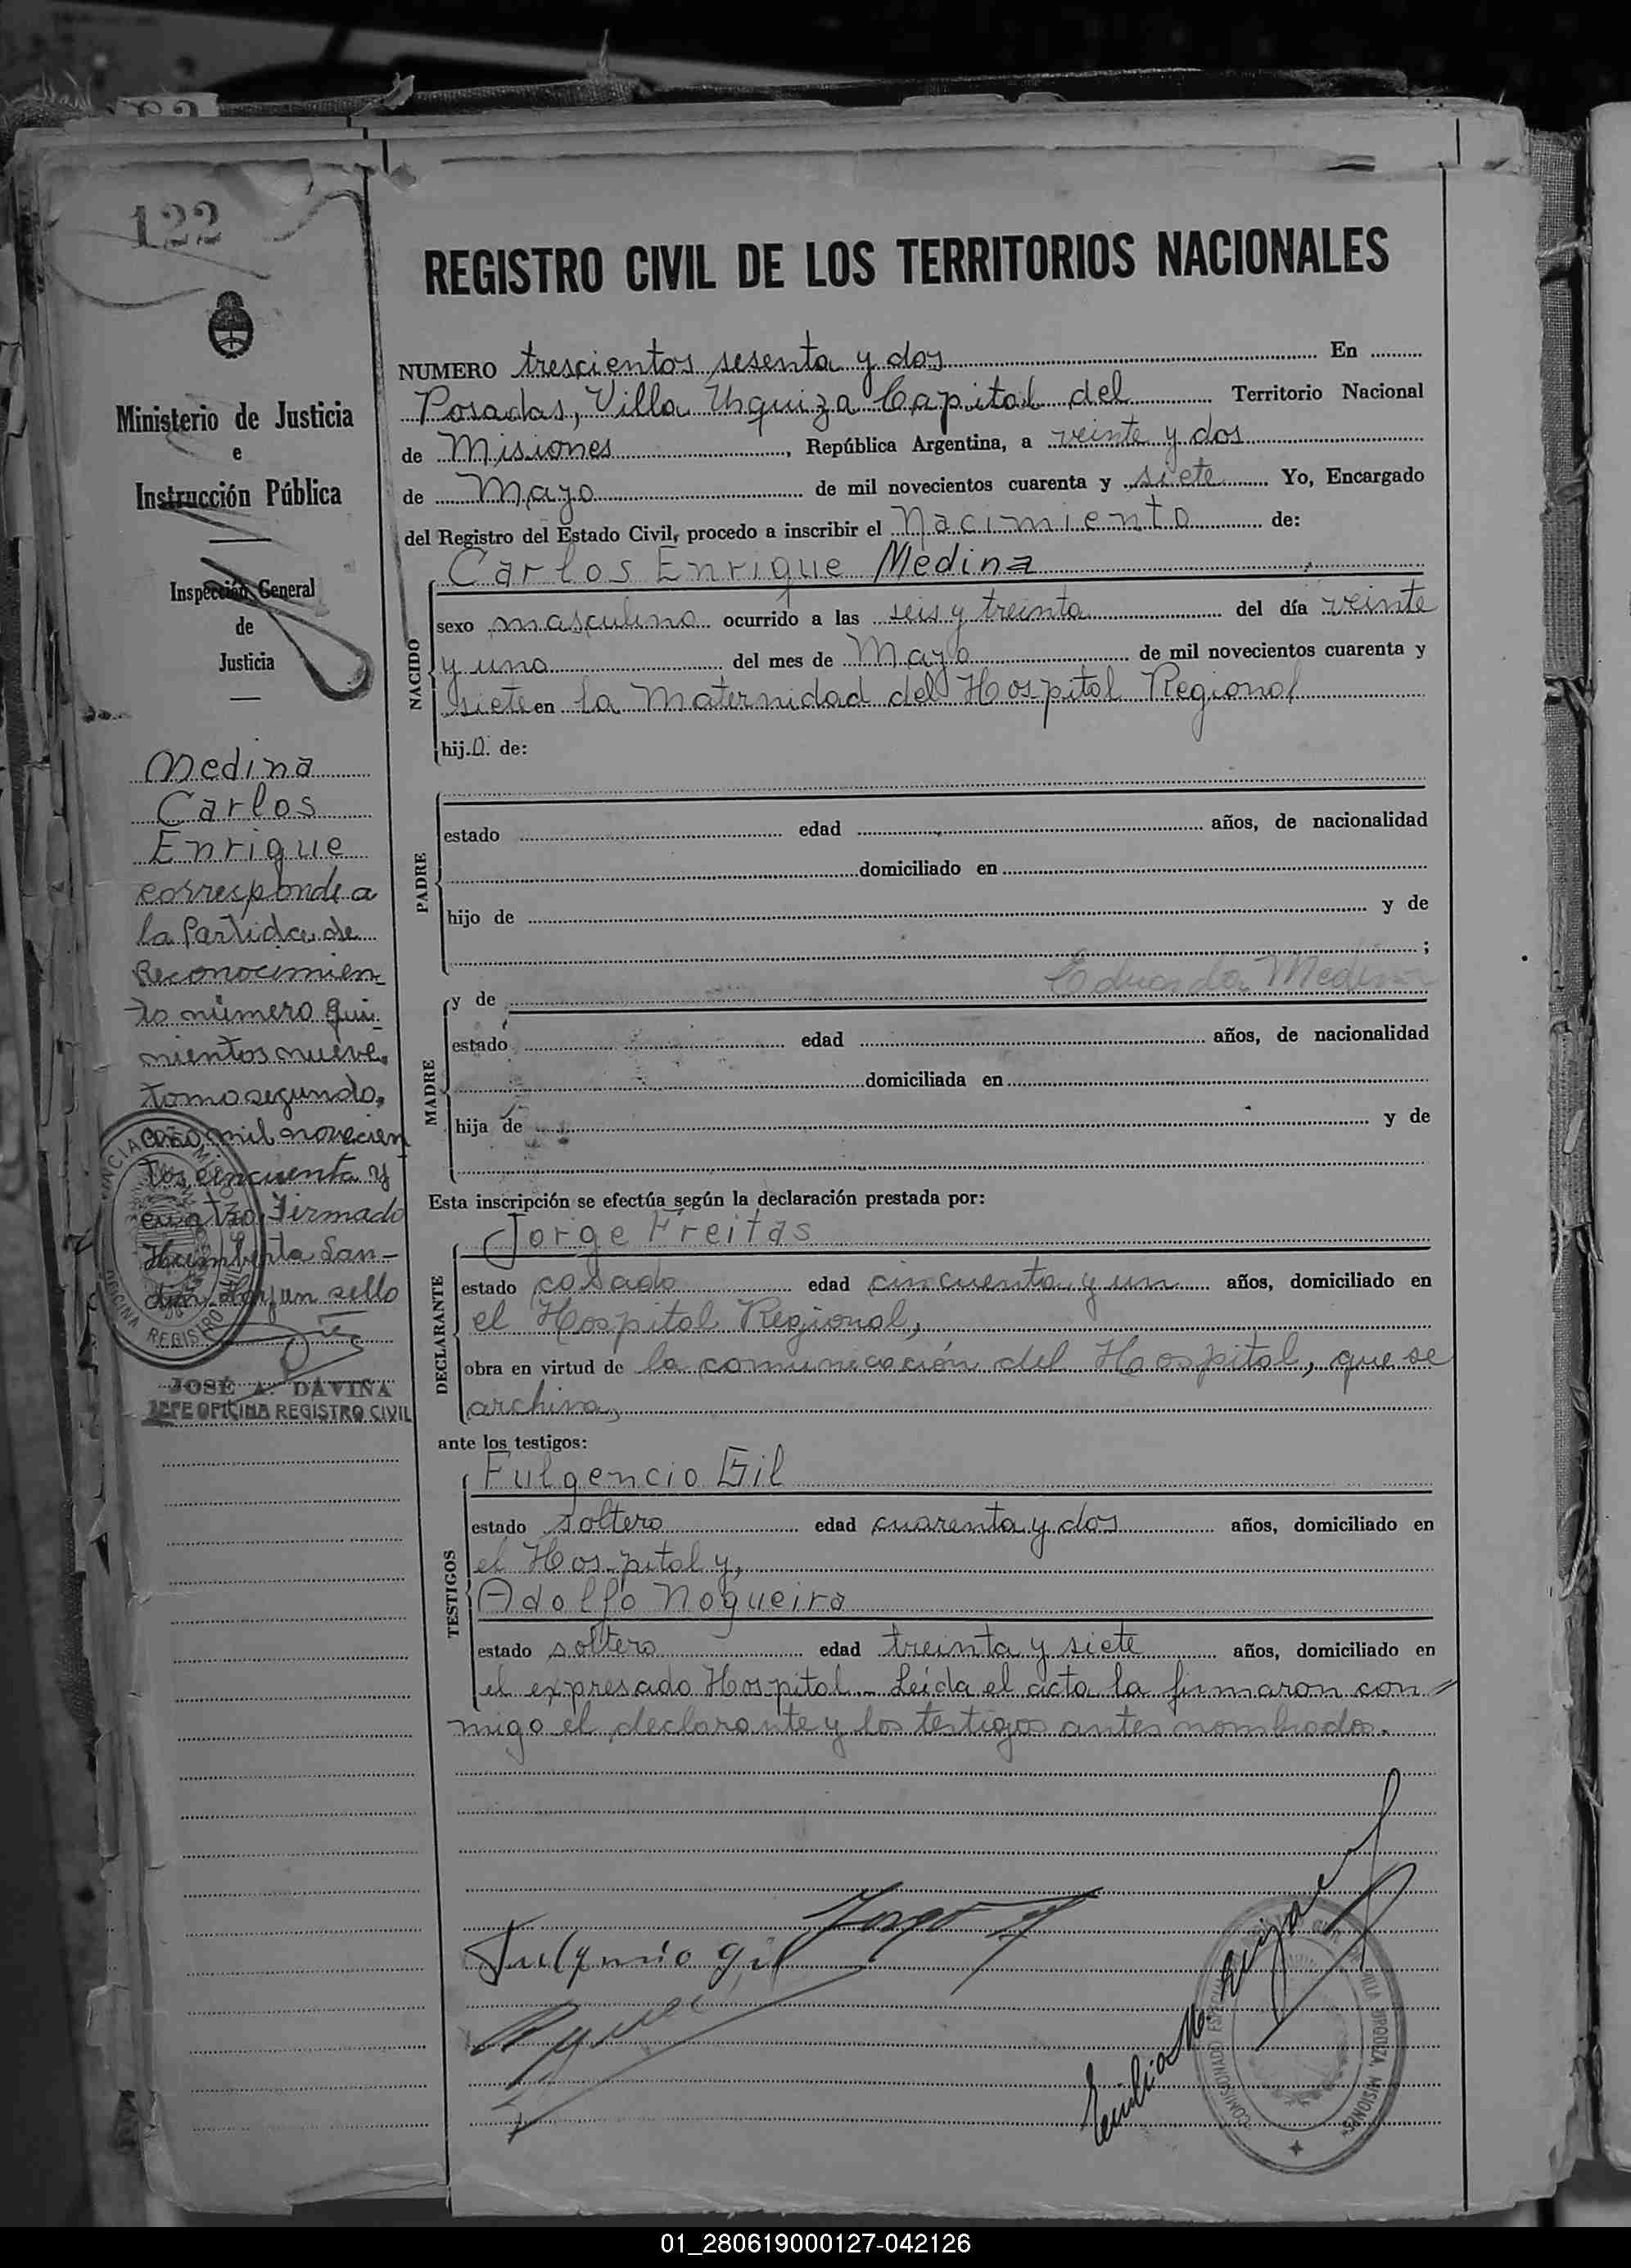 122
REGISTRO CIVIL DE LOS TERRITORIOS NACIONALES
Ministerio de Justicia
e
Instrucción Pública
Inspección General
de
Justicia
Medina
Carlos
Enrique
corresponde a
la Partida de
Reconocimien-
to número qui-
nientos nueve,
tomo segundo,
año mil novecien
tos cincuenta y
cuatro. Firmado
Humberto
Hay un sello
JOSÉ A. DAVIÑA
JEFE OFICINA REGISTRO CIVIL
OFICINA REGISTRO CIVIL
NUMERO trescientos sesenta y dos En
Posadas, Villa Urquiza Capital del Territorio Nacional
de Misiones, República Argentina, a veinte y dos
de Mayo de mil novecientos cuarenta y siete Yo, Encargado
del Registro del Estado Civil, procedo a inscribir el Nacimiento de:
NACIDO
Carlos Enrique Medina
sexo masculino ocurrido a las seis y treinta del día veinte
y uno del mes de Mayo de mil novecientos cuarenta y
siete en la Maternidad del Hospital Regional
hijo de:
PADRE
estado edad años, de nacionalidad
domiciliado en
hijo de y de
;
Eduarda Medina
MADRE
y de
estado edad años, de nacionalidad
domiciliada en
hija de y de
Esta inscripción se efectúa según la declaración prestada por:
DECLARANTE
Jorge Freitas
estado casado edad cincuenta y un años, domiciliado en
el Hospital Regional,
obra en virtud de la comunicación del Hospital, que se
archiva,
ante los testigos:
TESTIGOS
Fulgencio Gil
estado soltero edad cuarenta y dos años, domiciliado en
el Hospital y,
Adolfo Nogueira
estado soltero edad treinta y siete años, domiciliado en
el expresado Hospital.- Leída el acta la firmaron con
migo el declarante y los testigos antes nombrados.
Jorge
Fulgencio Gil
Emilio
COMISIONADO ESPECIAL VILLA URQUIZA, MISIONES
01_280619000127-042126